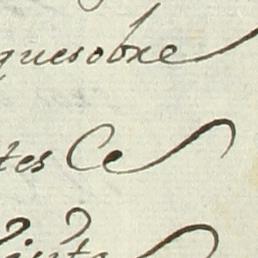 quesobre
tes Ce